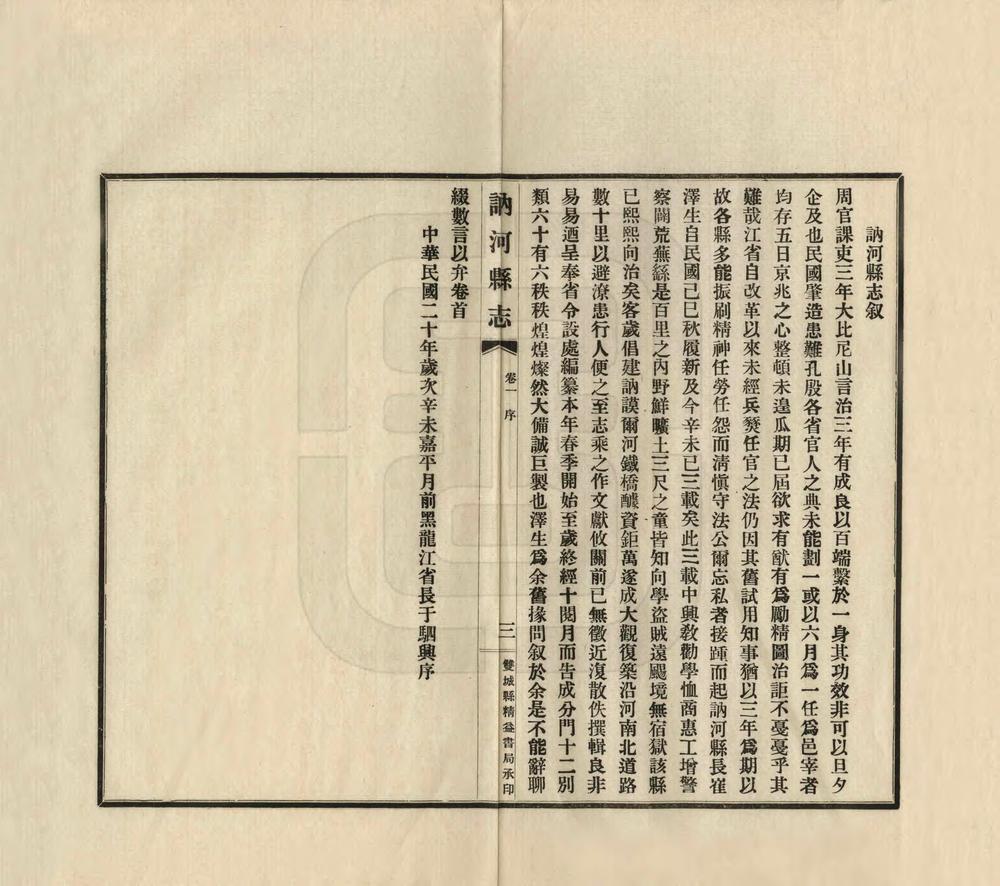 訥河縣志叙
周官課吏三年大比尼山言治三年有成良以百端繫於一身其功效非可以旦夕
企及也民國肇造患難孔殷各省官人之典未能劃一或以六月爲一任爲邑宰者
均存五日京兆之心整頓未遑瓜期已屆欲求有猷有爲勵精圖治詎不戞戞乎其
難哉江省自改革以來未經兵燹任官之法仍因其舊試用知事猶以三年爲期以
故各縣多能振刷精神任勞任怨而淸愼守法公爾忘私者接踵而起訥河縣長崔
澤生自民國己巳秋履新及今辛未已三載矣此三載中興敎勸學恤商惠工增警
察闢荒蕪繇是百里之內野鮮曠土三尺之童皆知向學盜賊遠颺境無宿獄該縣
已熙熙向治矣客歲倡建訥謨爾河鐵橋醵資鉅萬遂成大觀復築沿河南北道路
數十里以避潦患行人便之至志乘之作文獻攸關前已無徵近復散佚撰輯良非
易易迺呈奉省令設處編纂本年春季開始至歲終經十閱月而告成分門十二別
類六十有六秩秩煌煌燦然大備誠巨製也澤生爲余舊掾問叙於余是不能辭聊
訥河縣志
卷一 序
三
雙城縣精益書局承印
綴數言以弁卷首
中華民國二十年歲次辛未嘉平月前黑龍江省長于駟興序